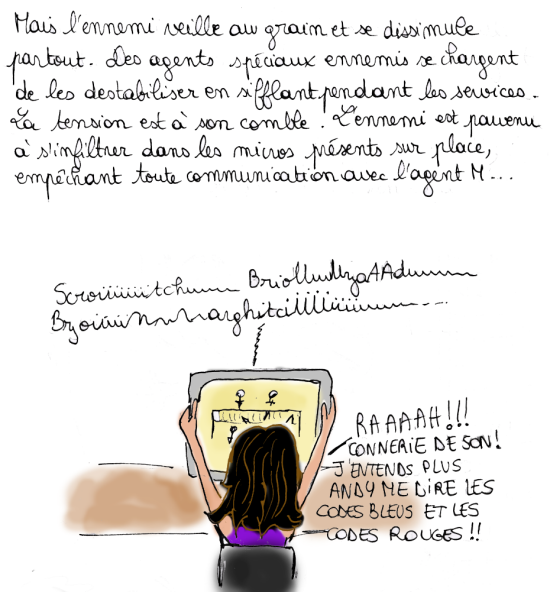 Mais l'ennemi veille au grain et se dissimule
partout. Des agents spéciaux ennemis se chargent
de les destabiliser en sifflant pendant les services.
La tension est à son comble. L'ennemi est parvenu
à s'infiltrer dans les micros présents sur place,
empêchant toute communication avec l'agent M...
RAAAAH!!!
CONNERIE DE SON!
J'ENTENDS PLUS
ANDY ME DIRE LES
CODES BLEUS ET LES
CODES ROUGES!!